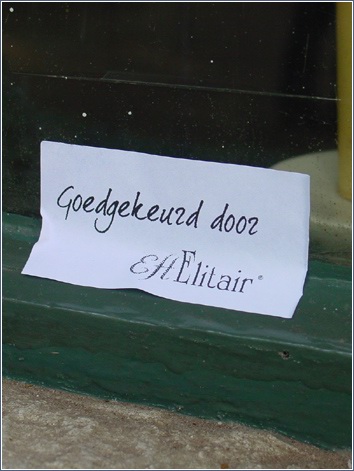 Goedgekeurd door
EffElitair®